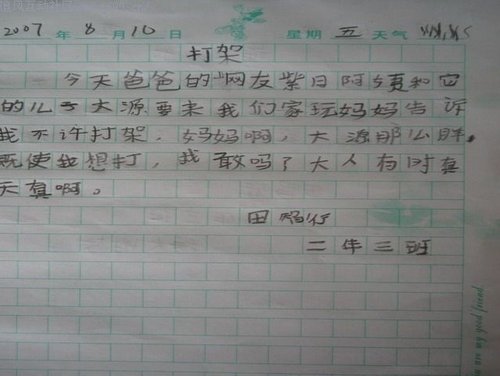 2007 年 8 月 10 日 星期 五 天气
打架
今天爸爸的"网友紫日阿姨和它
的儿子大源要来我们家玩妈妈告诉
我不许打架，妈妈啊，大源那么胖，
既使我想打，我敢吗？大人有时真
天真啊。
田
二年三班
my good friend.